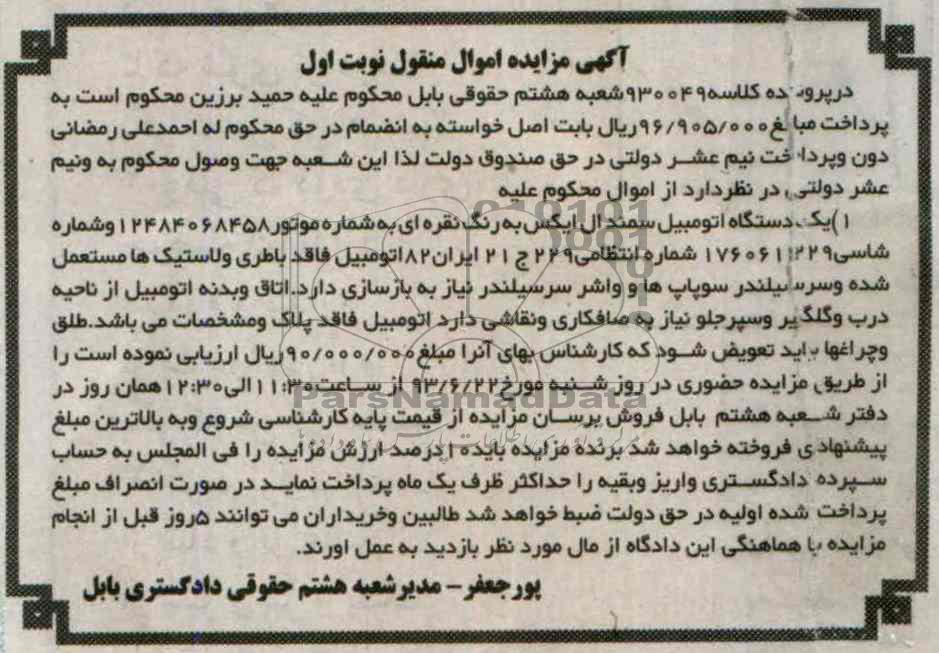 آگهی مزایده اموال منقول نوبت اول
درپرونده کلاسه۹۳۰۰۴۹شعبه هشتم حقوقی بابل محکوم علیه حمید برزین محکوم است به
پرداخت مبلغ۹۶/۹۰۵/۰۰۰ریال بابت اصل خواسته به انضمام در حق محکوم له احمدعلی رمضانی
دون وپرداخت نیم عشر دولتی در حق صندوق دولت لذا این شعبه جهت وصول محکوم به ونیم
عشر دولتی در نظردارد از اموال محکوم علیه
۱)یک دستگاه اتومبیل سمند ال ایکس به رنگ نقره ای به شماره موتور۱۲۴۸۴۰۶۸۴۵۸وشماره
شاسی شماره انتظامی۲۲۹ج۲۱ ایران۸۲اتومبیل فاقد باطری ولاستیک ها مستعمل
شده وسرسیلندر سوپاپ ها و واشر سرسیلندر نیاز به بازسازی دارد.اتاق وبدنه اتومبیل از ناحیه
درب وگلگیر وسپرجلو نیاز به صافکاری ونقاشی دارد اتومبیل فاقد پلاک ومشخصات می باشد.طلق
وچراغها باید تعویض شود که کارشناس بهای آنرا مبلغ۹۰/۰۰۰/۰۰۰ریال ارزیابی نموده است را
از طریق مزایده حضوری در روز شنبه مورخ۹۳/۶/۲۲ از ساعت۱۱:۳۰الی۱۲:۳۰همان روز در
دفتر شعبه هشتم بابل فروش برسان مزایده از قیمت پایه کارشناسی شروع وبه بالاترین مبلغ
پیشنهادی فروخته خواهد شد برنده مزایده باید۱۰درصد ارزش مزایده را فی المجلس به حساب
سپرده دادگستری واریز وبقیه را حداکثر ظرف یک ماه پرداخت نماید در صورت انصراف مبلغ
پرداخت شده اولیه در حق دولت ضبط خواهد شد طالبین وخریداران می توانند ۵روز قبل از انجام
مزایده با هماهنگی این دادگاه از مال مورد نظر بازدید به عمل اورند.
پورجعفر– مدیرشعبه هشتم حقوقی دادگستری بابل
ParsNamadData